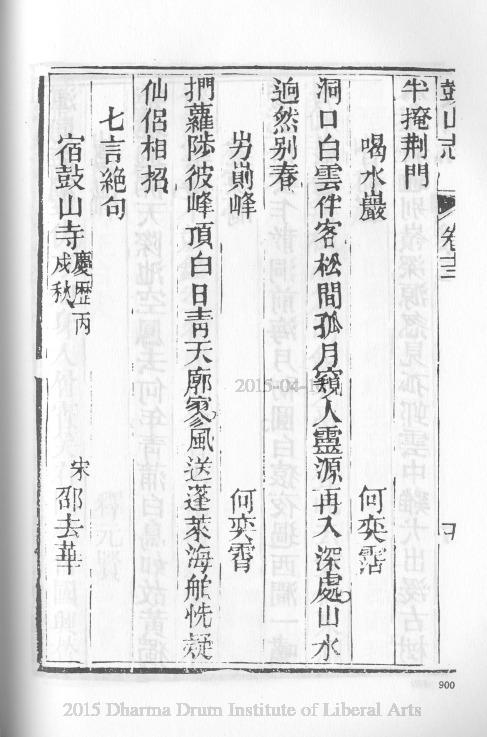 鼓山志 卷十三
半掩荆門
喝水巖 何奕霑
洞口白雲伴客松間孤月窺人靈源再入深處山水
迥然别春
屴崱峰 何奕霄
捫蘿陟彼峰頂白日靑天廓寥風送蓬萊海舶恍疑
仙侶相招
七言絶句
宿鼓山寺慶歷丙戌秋 宋 邵去華
900
2015-04-1
2015 Dharma Drum Institute of Liberal Arts